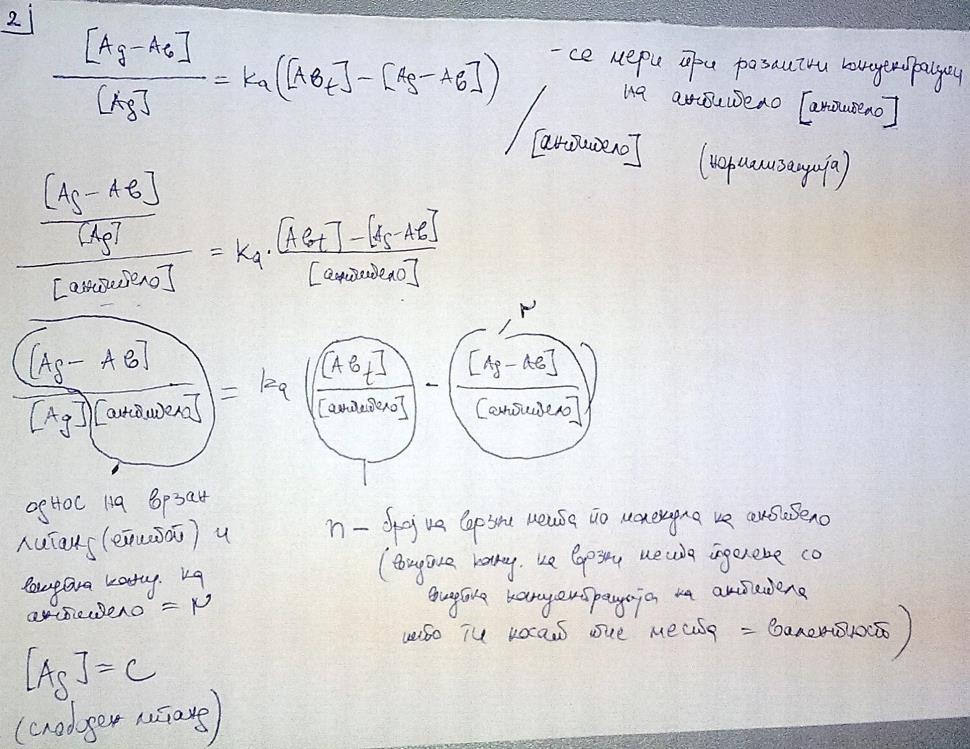 2
[Ag-Ab] / [Ag] = Ka([Abt] - [Ag-Ab])
- се мери при различни концентрации
на антитело [антитело]
/ [антитело] (нормализација)
[Ag-Ab] / [Ag] / [антитело] = Ka · [Abt] - [Ag-Ab] / [антитело]
r
[Ag-Ab] / [Ag][антитело] = Ka ([Abt] / [антитело] - [Ag-Ab] / [антитело])
однос на врзан
лиганд (епитоп) и
вкупна конц. на
антитело = r
[Ag] = C
(слободен лиганд)
n - број на врзни места по молекула на антитело
(вкупна конц. на врзни места поделена со
вкупна концентрација на антитела
што ги носат тие места = валентност)